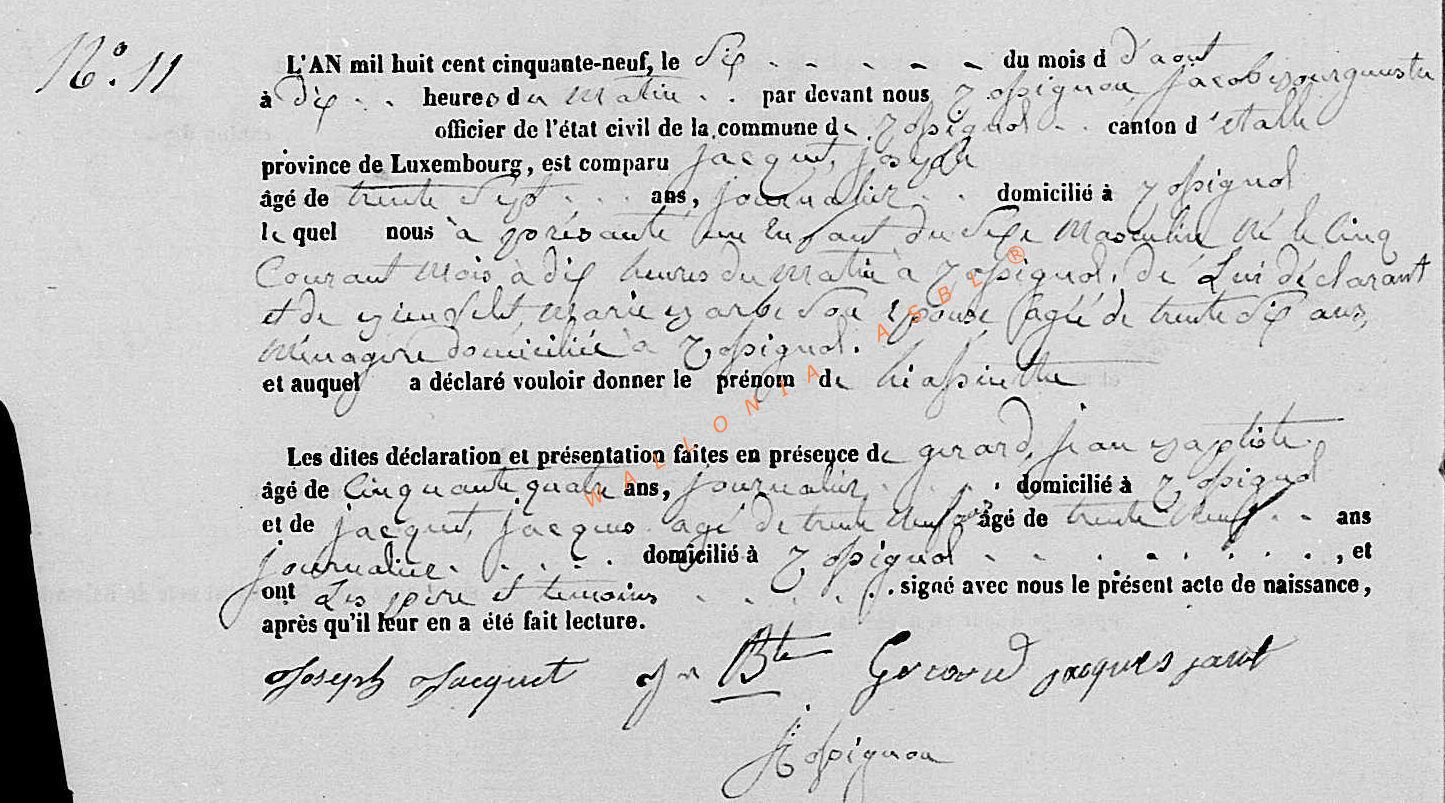 N°. 11
L'AN mil huit cent cinquante-neuf, le Six - - - - - du mois d d'aout
à dix - - heures du matin - - par devant nous Rossignon, jacob bourguestre
officier de l'état civil de la commune de Rossignol - - canton d'etalle
province de Luxembourg, est comparu jacquet, joseph
âgé de trente Sept - - - ans, journalier - - domicilié à Rossignol
lequel nous à présenté un Enfant du Sexe Masculin Né le Cinq
Courant Mois à dix heures du Matin à Rossignol, de Lui déclarant
et de Marie barbe Son Epouse agée de trente Six ans,
Ménagere domiciliée à Rossignol.
et auquel a déclaré vouloir donner le prénom de hiassinthe
Les dites déclaration et présentation faites en présence de gerard, jean baptiste.
âgé de Cinquante quatre ans, journalier, - - - domicilié à Rossignol
et de jacquet, jacques. agé de trente Neuf âgé de trente Neuf - - ans
journalier - - - - domicilié à Rossignol - - - - - - - , et
ont Les père et temoins - - - - signé avec nous le présent acte de naissance,
après qu'il leur en a été fait lecture.
Joseph Jacquet J n Bte Gerard jacques
Rossignon
WALLONIA ASBL ®